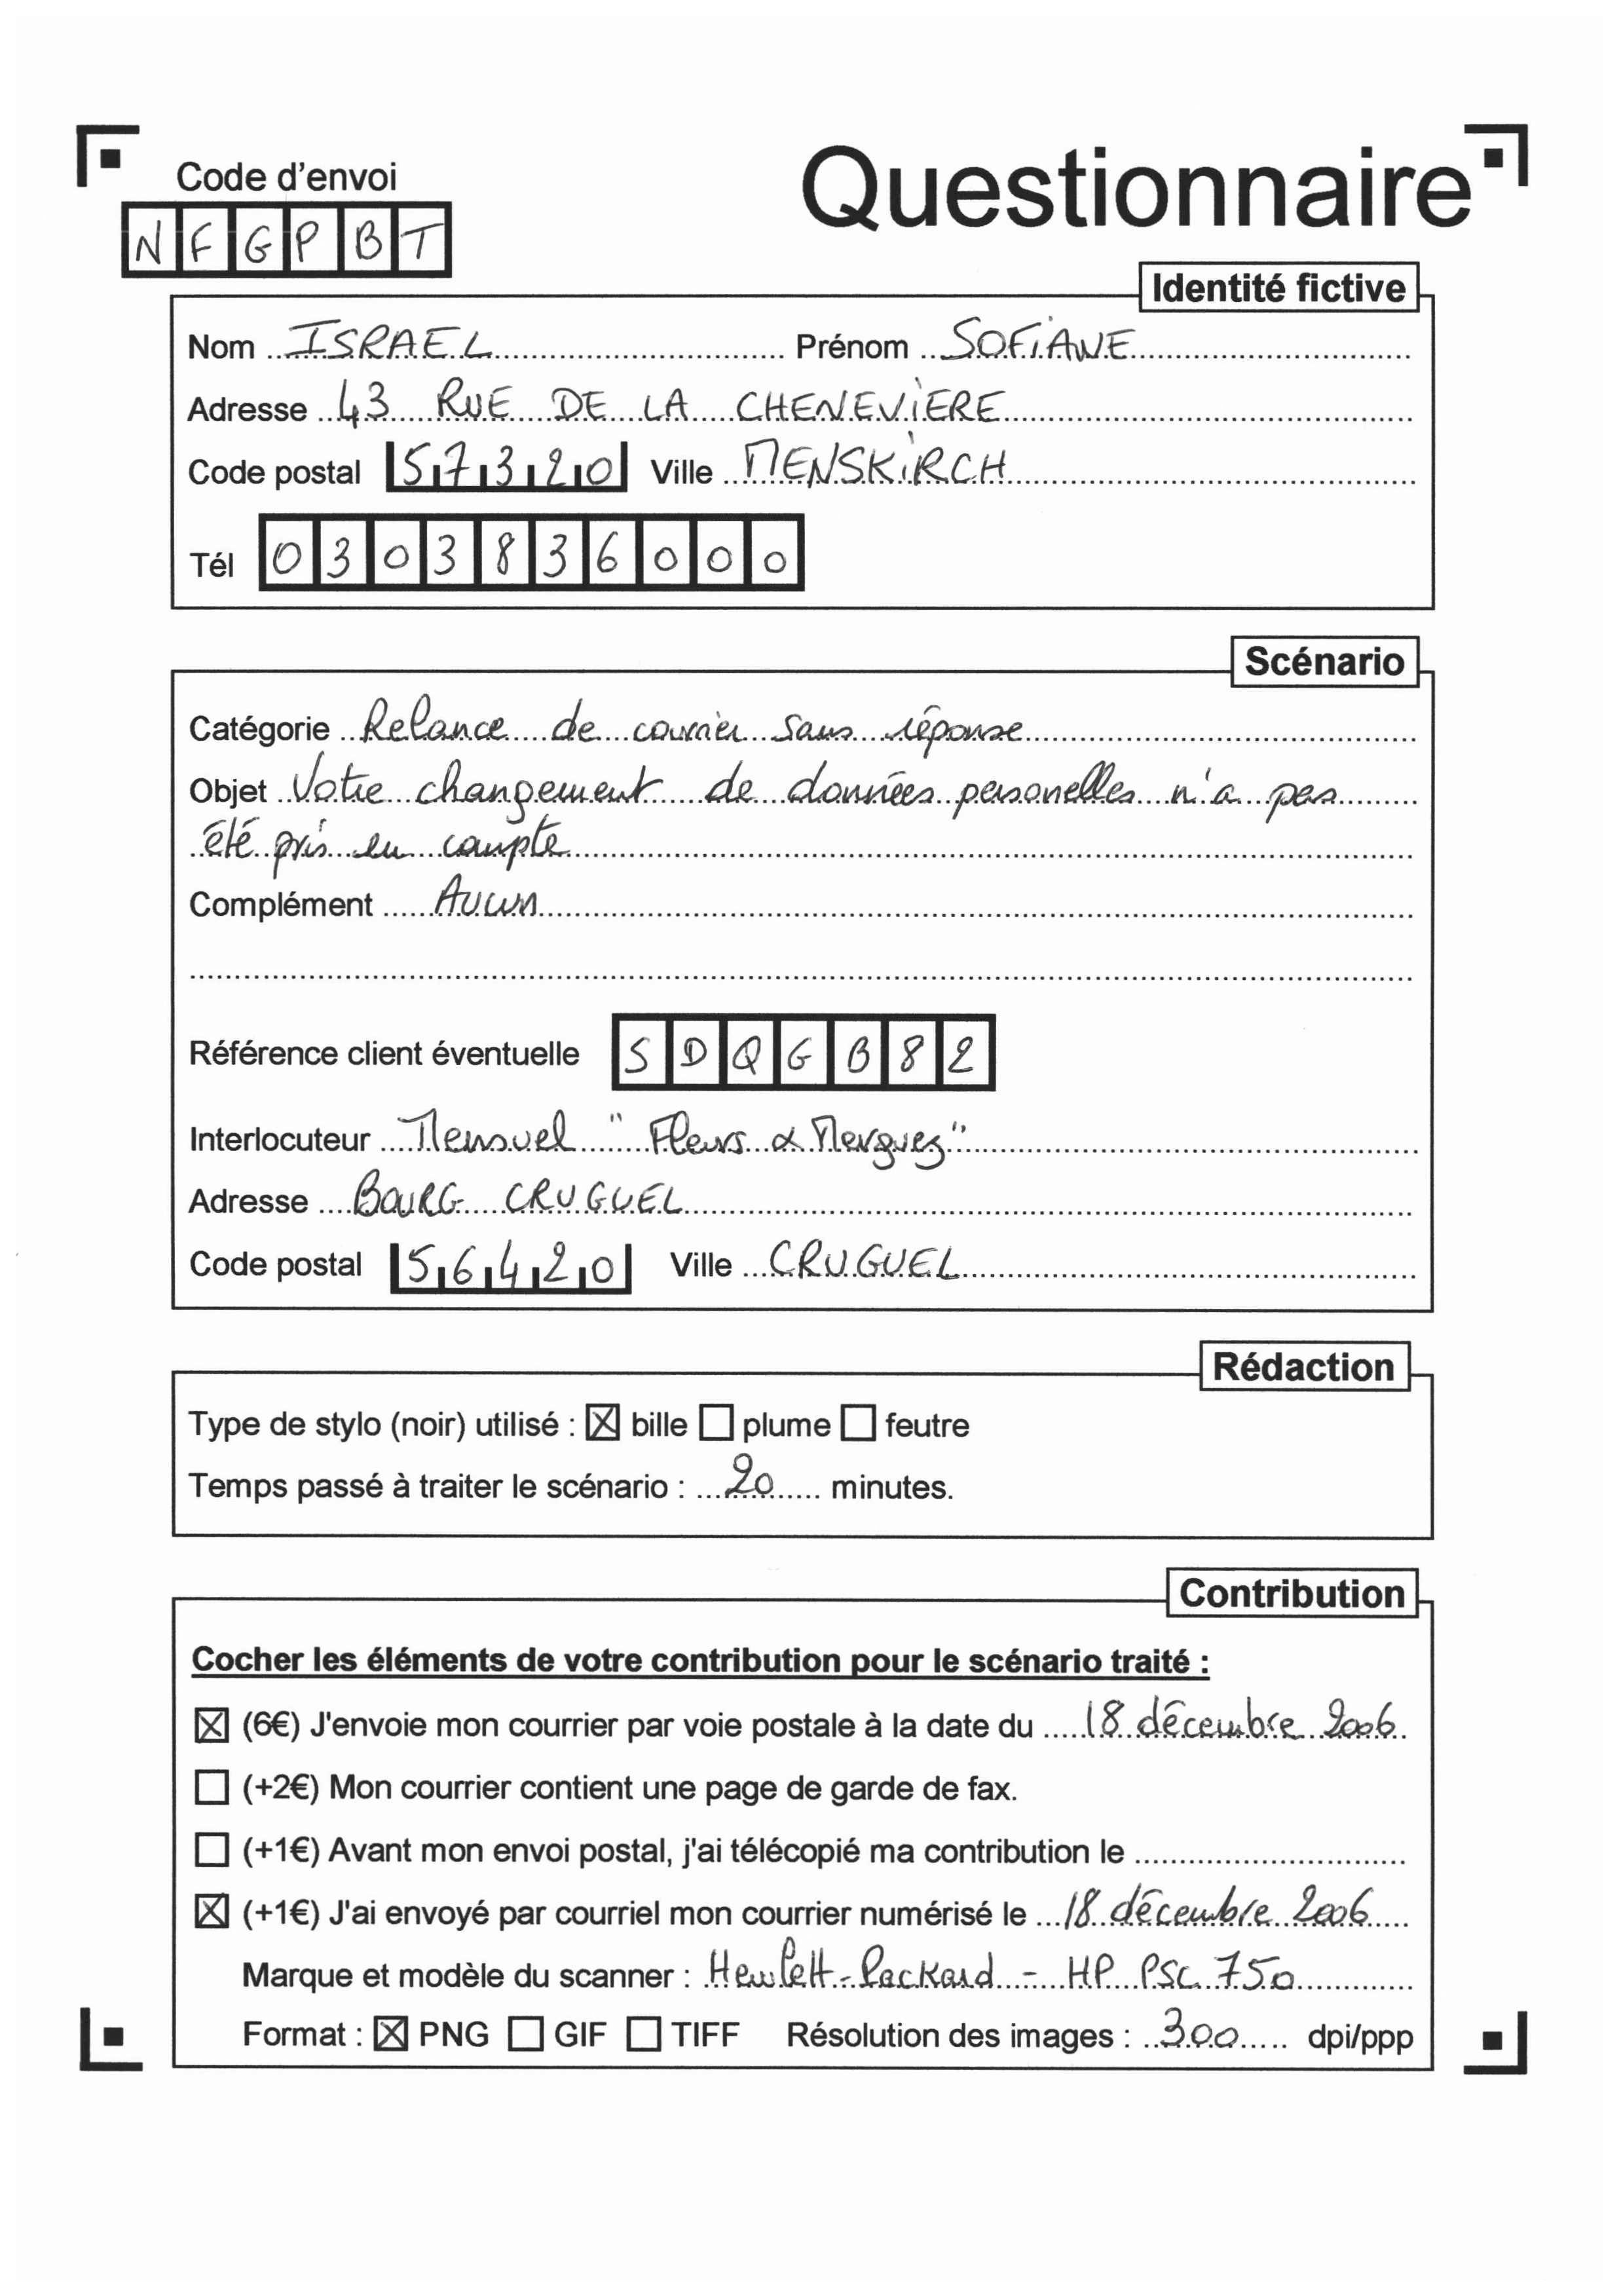 Code d'envoi
Questionnaire
NFGPBT
Identité fictive
Nom ISRAEL Prénom SOFIANE
Adresse 43 RUE DE LA CHENEVIERE
Code postal 57320 Ville MENSKIRCH
Tél 0303836000
Scénario
Catégorie Relance de courrier sans réponse
Objet Votre changement de données personelles n'a pas
été pris en compte
Complément Aucun
Référence client éventuelle SDQGB82
Interlocuteur Mensuel "Fleurs & Merguez"
Adresse BOURG CRUGUEL
Code postal 56420 Ville CRUGUEL
Rédaction
Type de stylo (noir) utilisé : ☒ bille ☐ plume ☐ feutre
Temps passé à traiter le scénario : 20 minutes.
Contribution
Cocher les éléments de votre contribution pour le scénario traité :
☒ (6€) J'envoie mon courrier par voie postale à la date du 18 décembre 2006
☐ (+2€) Mon courrier contient une page de garde de fax.
☐ (+1€) Avant mon envoi postal, j'ai télécopié ma contribution le
☒ (+1€) J'ai envoyé par courriel mon courrier numérisé le 18 décembre 2006
Marque et modèle du scanner : Hewlett-Packard - HP PSC 750
Format : ☒ PNG ☐ GIF ☐ TIFF Résolution des images : 300 dpi/ppp